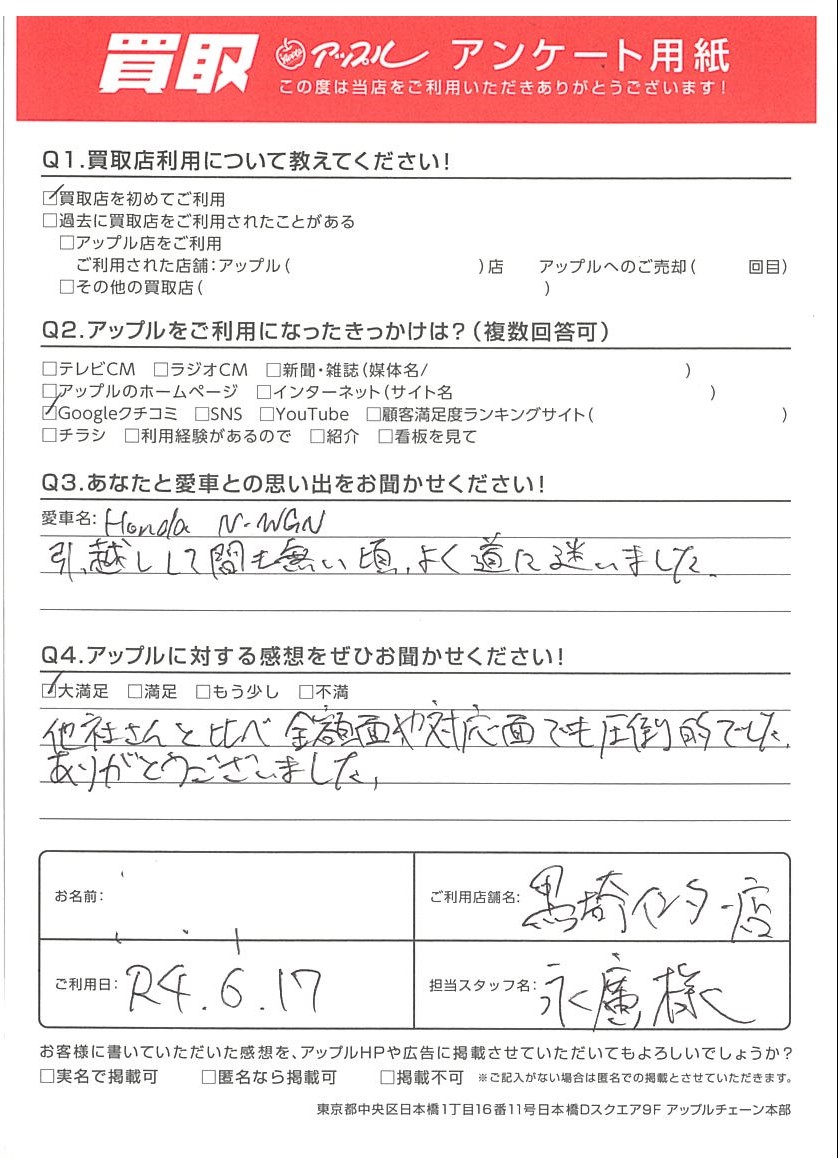 買取 アップル アンケート用紙
この度は当店をご利用いただきありがとうございます!
Q1.買取店利用について教えてください!
☑買取店を初めてご利用
□過去に買取店をご利用されたことがある
□アップル店をご利用
ご利用された店舗:アップル( )店 アップルへのご売却( 回目)
□その他の買取店( )
Q2.アップルをご利用になったきっかけは?(複数回答可)
□テレビCM □ラジオCM □新聞・雑誌(媒体名/ )
□アップルのホームページ □インターネット(サイト名 )
☑Googleクチコミ □SNS □YouTube □顧客満足度ランキングサイト( )
□チラシ □利用経験があるので □紹介 □看板を見て
Q3.あなたと愛車との思い出をお聞かせください!
愛車名: Honda N-WGN
引越しして間も無い頃、よく道に迷いました。
Q4.アップルに対する感想をぜひお聞かせください!
☑大満足 □満足 □もう少し □不満
他社さんと比べ金額面や対応面でも圧倒的でした。
ありがとうございました。
お名前:
ご利用店舗名: 黒埼インター店
ご利用日: R4.6.17
担当スタッフ名: 永廣様
お客様に書いていただいた感想を、アップルHPや広告に掲載させていただいてもよろしいでしょうか?
□実名で掲載可 □匿名なら掲載可 □掲載不可 ※ご記入がない場合は匿名での掲載とさせていただきます。
東京都中央区日本橋1丁目16番11号日本橋Dスクエア9F アップルチェーン本部